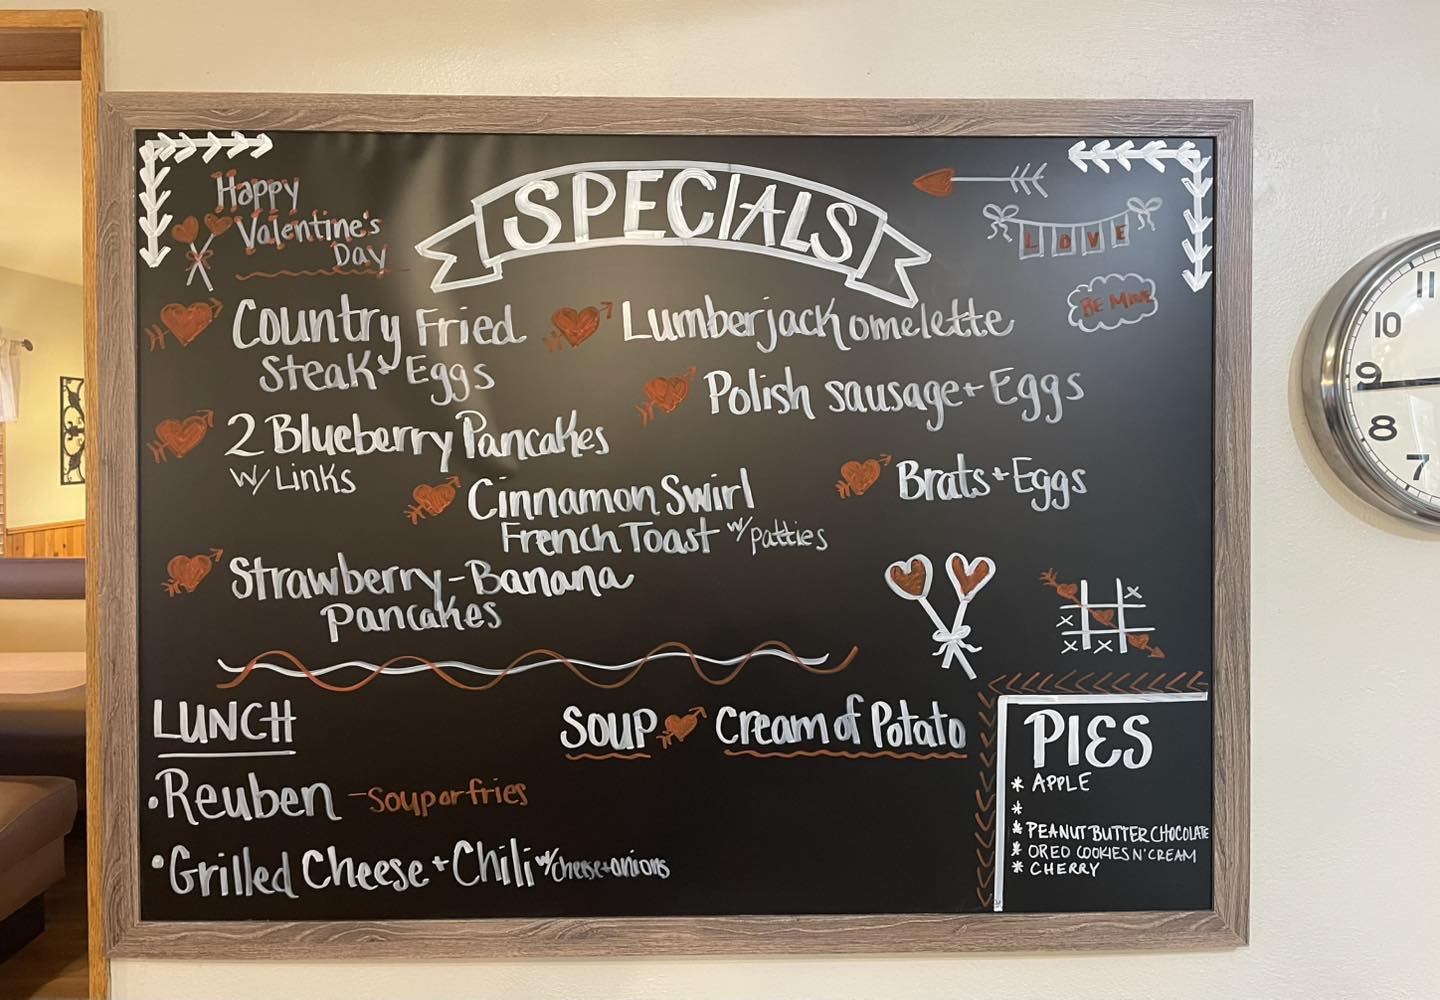 Happy
Valentine's
Day
SPECIALS
LOVE
BE MINE
Country Fried
Steak + Eggs
Lumberjack omelette
Polish sausage + Eggs
2 Blueberry Pancakes
w/ Links
Brats + Eggs
Cinnamon Swirl
French Toast w/ patties
Strawberry-Banana
Pancakes
X
X
X X
LUNCH
SOUP Cream of Potato
• Reuben - soup or fries
• Grilled Cheese + Chili w/ cheese + onions
PIES
* APPLE
*
* PEANUT BUTTER CHOCOLATE
* OREO COOKIES N' CREAM
* CHERRY
11
10
9
8
7